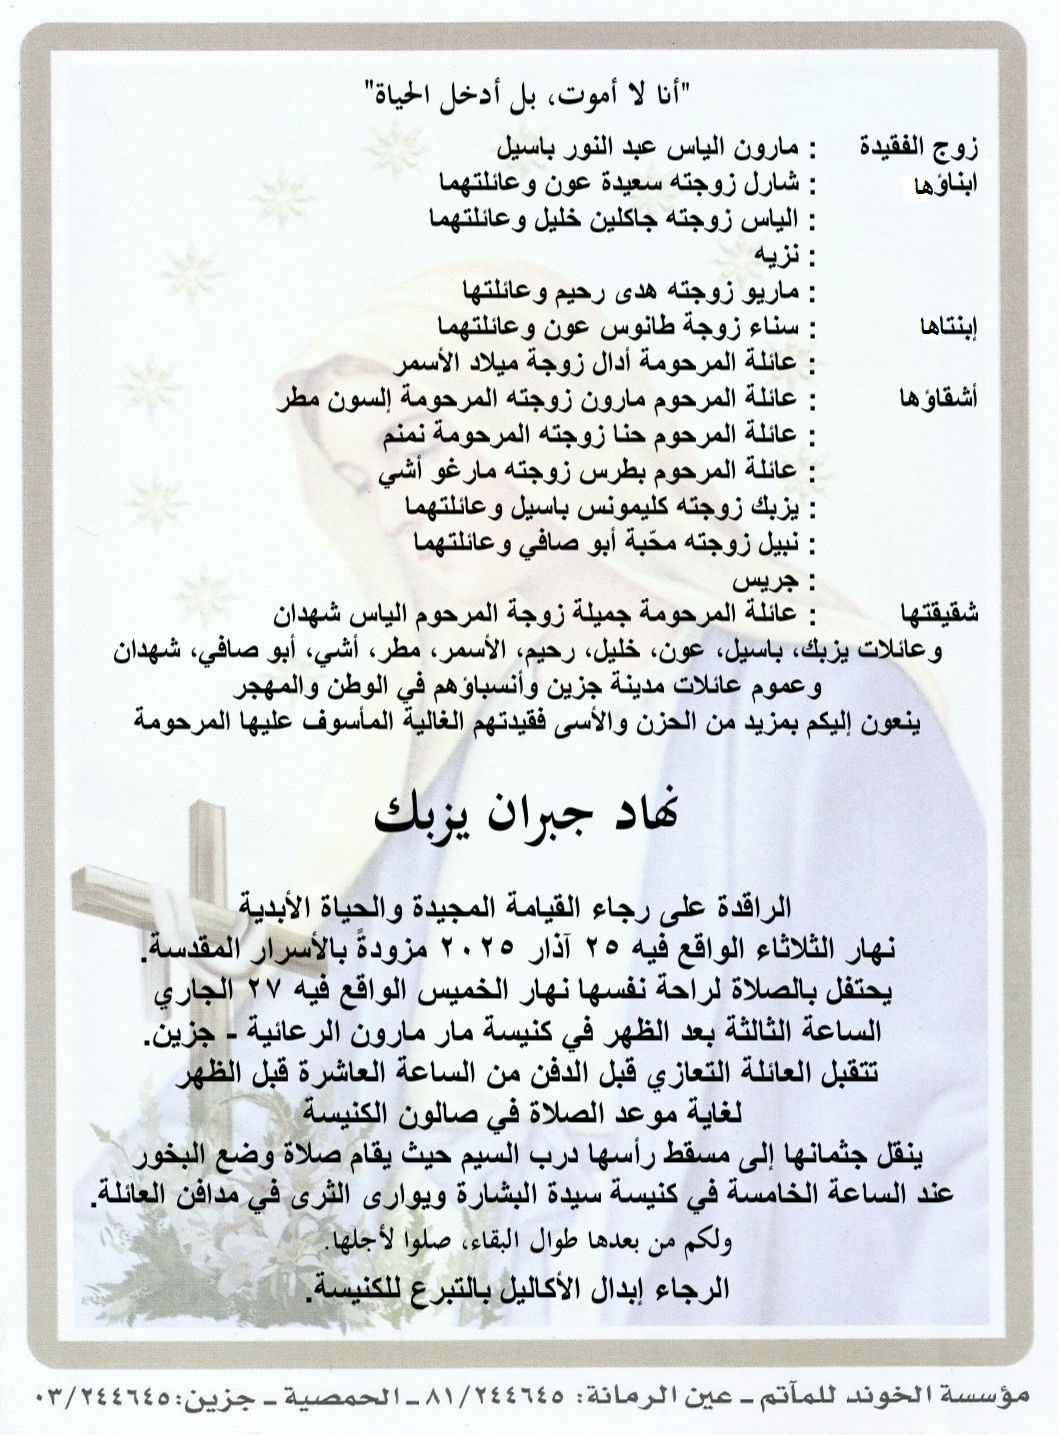 "أنا لا أموت، بل أدخل الحياة"
زوج الفقيدة : مارون الياس عبد النور باسيل
ابناؤها : شارل زوجته سعيدة عون وعائلتهما
: الياس زوجته جاكلين خليل وعائلتهما
: نزيه
: ماريو زوجته هدى رحيم وعائلتها
إبنتاها : سناء زوجة طانوس عون وعائلتهما
: عائلة المرحومة أدال زوجة ميلاد الأسمر
أشقاؤها : عائلة المرحوم مارون زوجته المرحومة إلسون مطر
: عائلة المرحوم حنا زوجته المرحومة نمنم
: عائلة المرحوم بطرس زوجته مارغو أشي
: يزبك زوجته كليمونس باسيل وعائلتهما
: نبيل زوجته محّبة أبو صافي وعائلتهما
: جريس
شقيقتها : عائلة المرحومة جميلة زوجة المرحوم الياس شهدان
وعائلات يزبك، باسيل، عون، خليل، رحيم، الأسمر، مطر، أشي، أبو صافي، شهدان
وعموم عائلات مدينة جزين وأنسباؤهم في الوطن والمهجر
ينعون إليكم بمزيد من الحزن والأسى فقيدتهم الغالية المأسوف عليها المرحومة
نهاد جبران يزبك
الراقدة على رجاء القيامة المجيدة والحياة الأبدية
نهار الثلاثاء الواقع فيه ٢٥ آذار ٢٠٢٥ مزودةً بالأسرار المقدسة.
يحتفل بالصلاة لراحة نفسها نهار الخميس الواقع فيه ٢٧ الجاري
الساعة الثالثة بعد الظهر في كنيسة مار مارون الرعائية - جزين.
تتقبل العائلة التعازي قبل الدفن من الساعة العاشرة قبل الظهر
لغاية موعد الصلاة في صالون الكنيسة
ينقل جثمانها إلى مسقط رأسها درب السيم حيث يقام صلاة وضع البخور
عند الساعة الخامسة في كنيسة سيدة البشارة ويوارى الثرى في مدافن العائلة.
ولكم من بعدها طوال البقاء، صلوا لأجلها.
الرجاء إبدال الأكاليل بالتبرع للكنيسة.
مؤسسة الخوند للمآتم - عين الرمانة: ٨١/٢٤٤٦٤٥ - الحمصية - جزين: ٠٣/٢٤٤٦٤٥